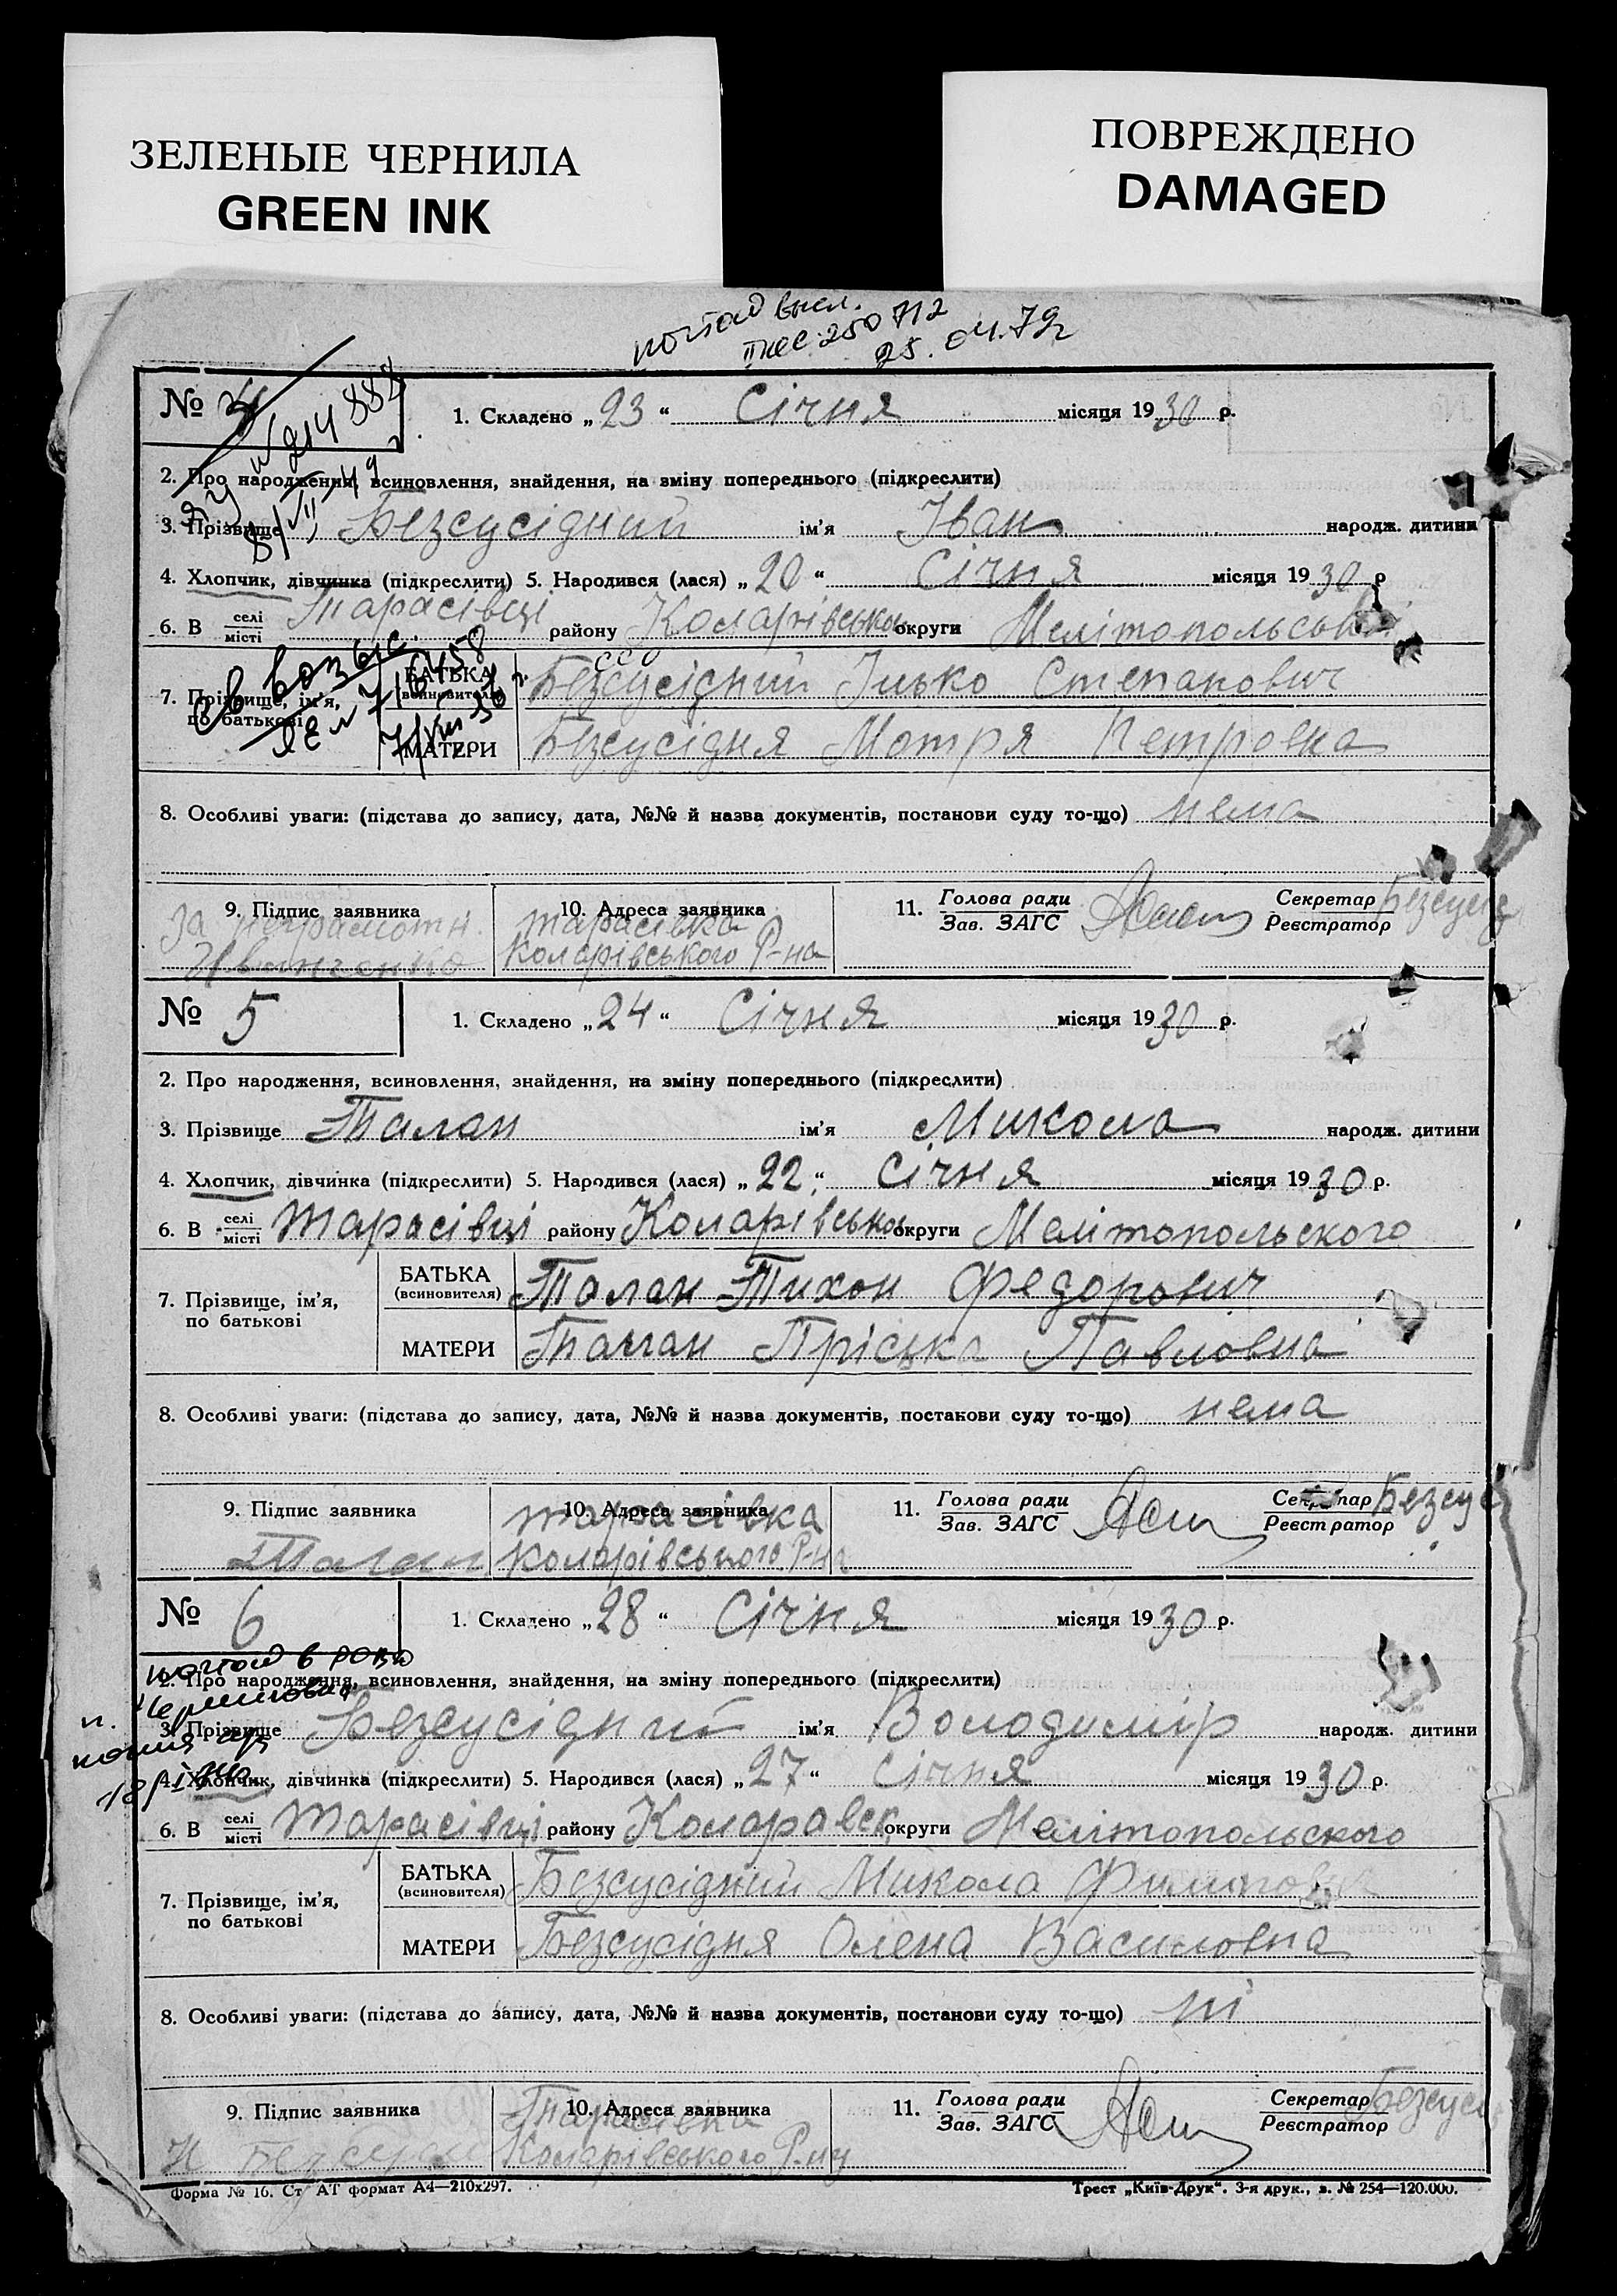 ЗЕЛЕНЫЕ ЧЕРНИЛА
GREEN INK
ПОВРЕЖДЕНО
DAMAGED
25.04.79г
№ 4
1. Складено „23“ Січня місяця 1930 р.
2. Про народження, всиновлення, знайдення, на зміну попереднього (підкреслити)
3. Прізвище Безсусідний ім'я Іван народж. дитини
4. Хлопчик, дівчинка (підкреслити) 5. Народився (лася) „20“ Січня місяця 1930 р
6. В селі/місті Тарасівці району Коларівськ округи Мелітопольськ
7. Прізвище, ім'я, по батькові
БАТЬКА (всиновителя) Безсусідний Ілько Степанович
МАТЕРИ Безсусідня Мотря Петровна
8. Особливі уваги: (підстава до запису, дата, №№ й назва документів, постанови суду то-що) нема
9. Підпис заявника
За неграмотн.
10. Адреса заявника
Тарасівка
Коларівського Р-на
11. Голова ради/Зав. ЗАГС Секретар/Реєстратор Безсусід
№ 5
1. Складено „24“ Січня місяця 1930 р.
2. Про народження, всиновлення, знайдення, на зміну попереднього (підкреслити)
3. Прізвище Талан ім'я Микола народж. дитини
4. Хлопчик, дівчинка (підкреслити) 5. Народився (лася) „22“ Січня місяця 1930 р.
6. В селі/місті Тарасівці району Коларівськ округи Мелітопольского
7. Прізвище, ім'я, по батькові
БАТЬКА (всиновителя) Талан Тихон Федорович
МАТЕРИ Талан Пріська Павловна
8. Особливі уваги: (підстава до запису, дата, №№ й назва документів, постанови суду то-що) нема
9. Підпис заявника
Талан
10. Адреса заявника
Тарасівка
Коларівського Р-на
11. Голова ради/Зав. ЗАГС Секретар/Реєстратор Безсус
№ 6
1. Складено „28“ Січня місяця 1930 р.
2. Про народження, всиновлення, знайдення, на зміну попереднього (підкреслити)
3. Прізвище Безсусідний ім'я Володимір народж. дитини
4. Хлопчик, дівчинка (підкреслити) 5. Народився (лася) „27“ Січня місяця 1930 р.
6. В селі/місті Тарасівці району Коларавск округи Мелітопольского
7. Прізвище, ім'я, по батькові
БАТЬКА (всиновителя) Безсусідний Микола
МАТЕРИ Безсусідня Олена Василовна
8. Особливі уваги: (підстава до запису, дата, №№ й назва документів, постанови суду то-що) ні
9. Підпис заявника
10. Адреса заявника
Тарасівка
Коларівського Р-ну
11. Голова ради/Зав. ЗАГС Секретар/Реєстратор Безсус
Форма № 16. Ст АТ формат А4—210x297.
Трест „Київ-Друк“. 3-я друк., з. № 254—120.000.